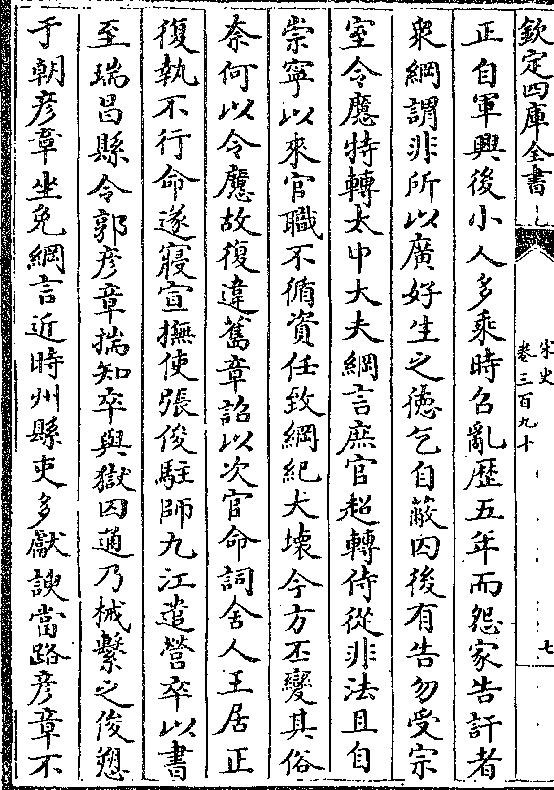 欽定四庫全書
宋史
卷三百九十
七
正自軍興後小人多乘時召亂歴五年而怨家告訐者
衆綱謂非所以廣好生之徳乞自蔽囚後有告勿受宗
室令懬特轉太中大夫綱言庶官超轉侍從非法且自
崇寧以來官職不循資任致綱紀大壊今方丕變其俗
奈何以令懬故復違舊章詔以次官命詞舍人王居正
復執不行命遂寢宣撫使張俊駐師九江遣營卒以書
至瑞昌縣令郭彦章揣知卒與獄囚通乃械繫之俊愬
于朝彦章坐免綱言近時州縣吏多獻諛當路彦章不